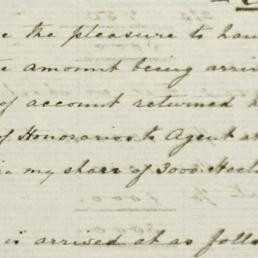 e the pleasure to han
e amount being arriv
of account returned h
of Honorarios to Agent a
my share of 3000 Hect
is arrived at as follo